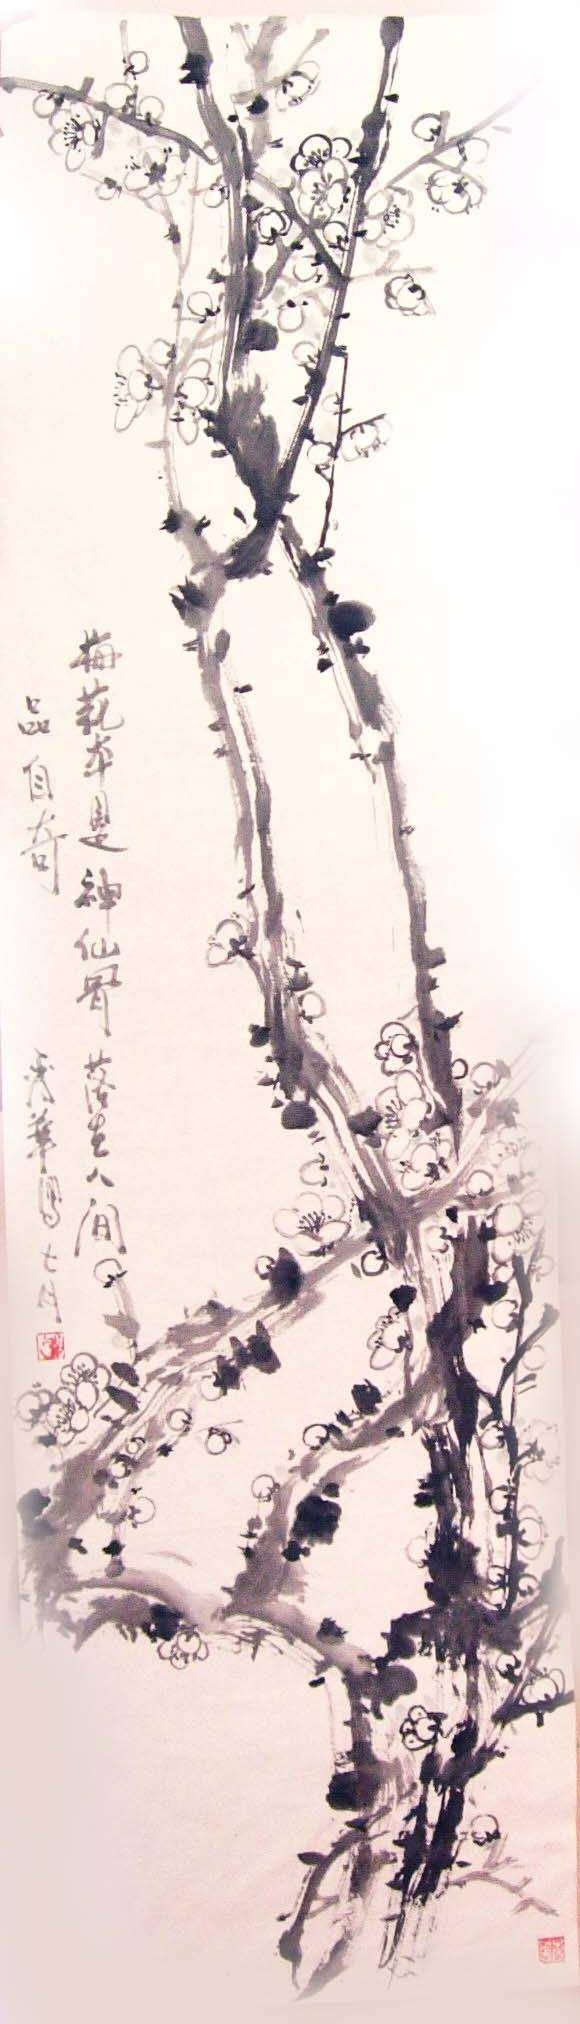 梅花本是神仙骨落在人间
品自奇
秀华写七月